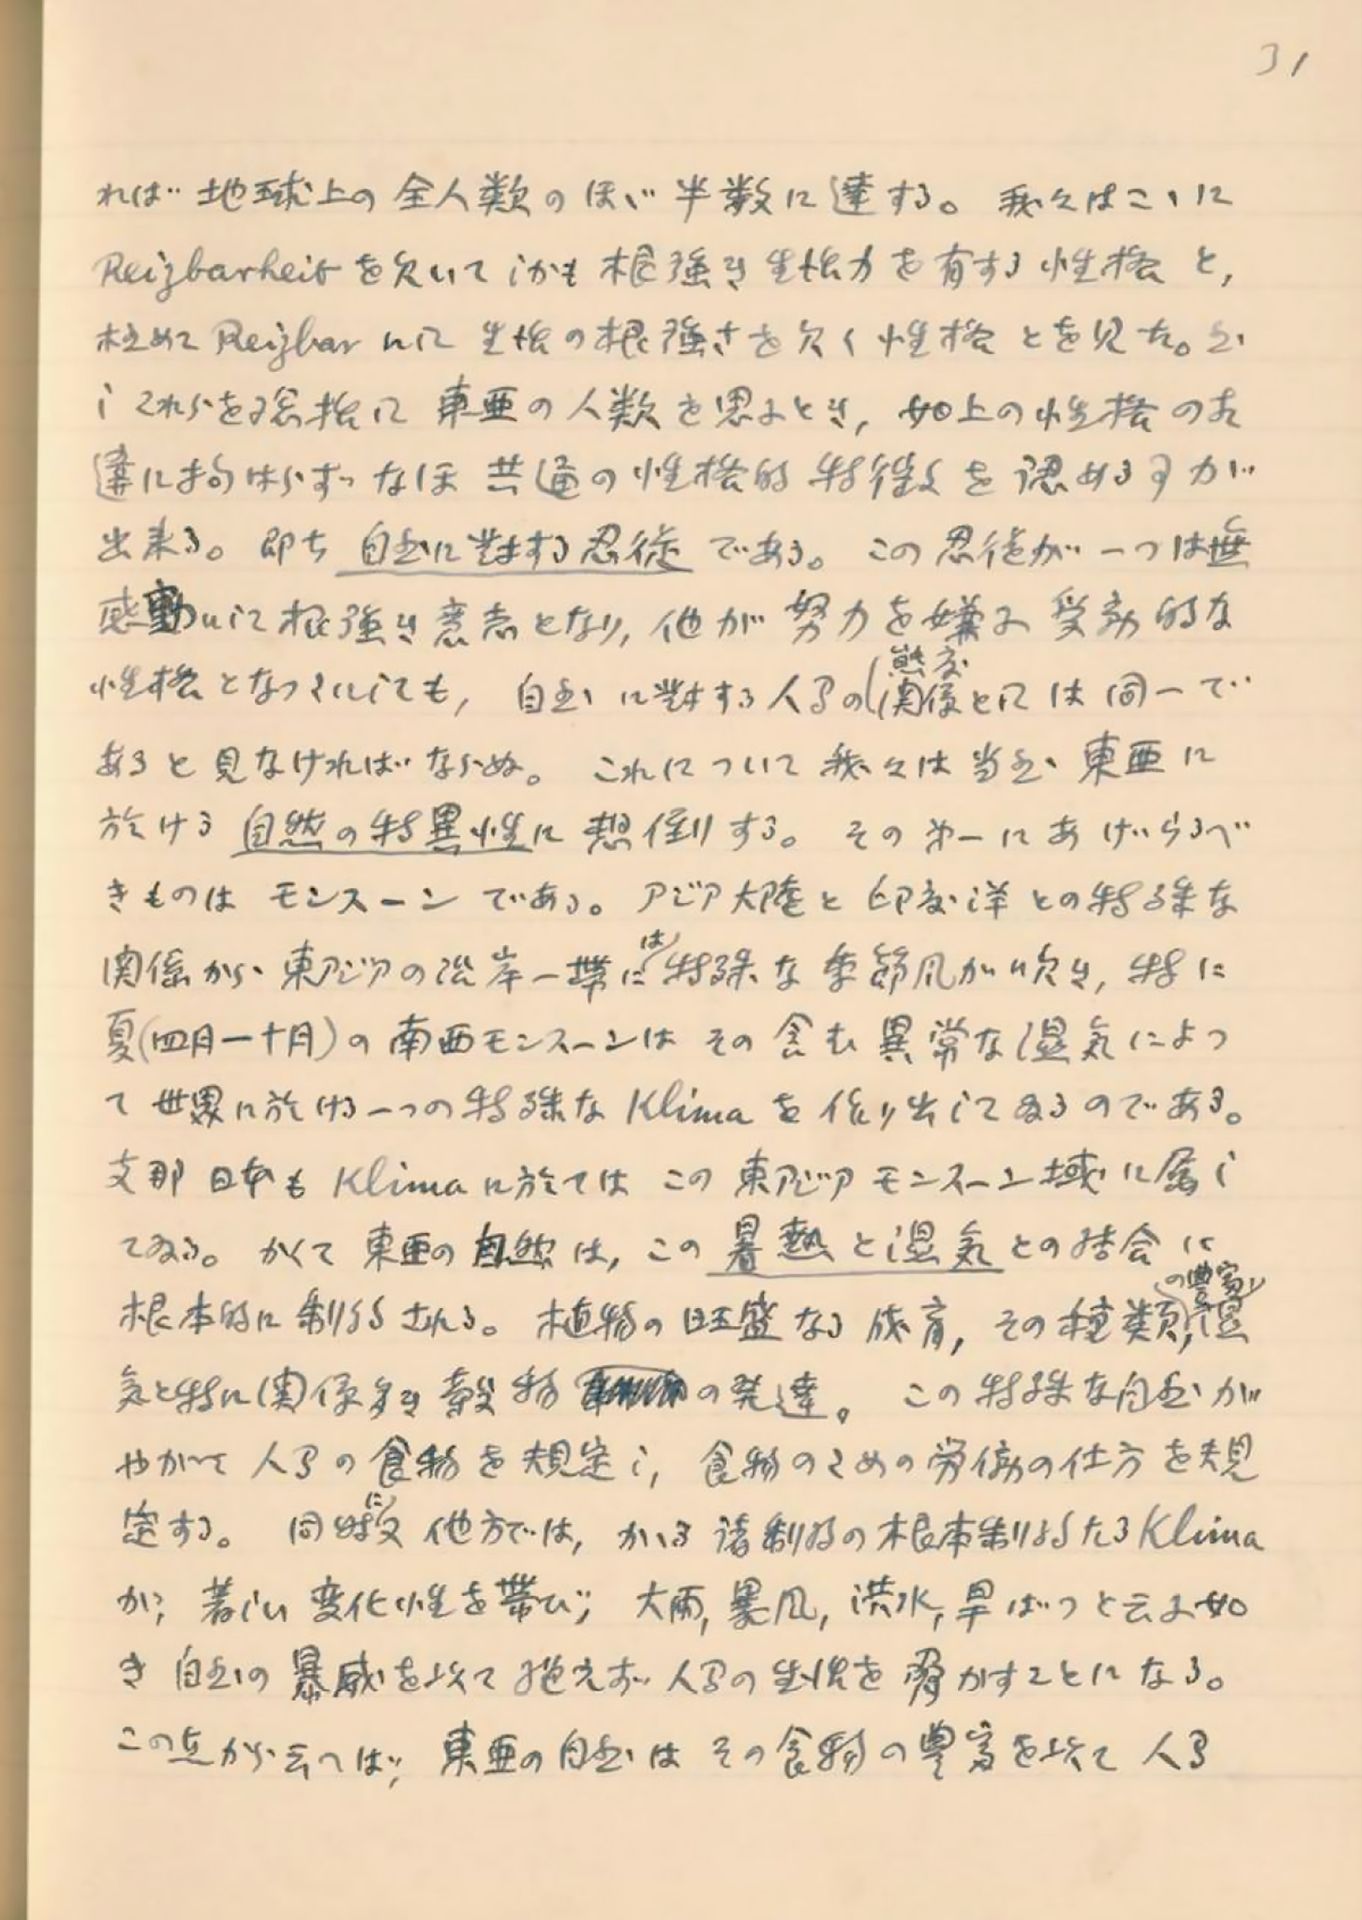 31
れば地球上の全人類のほゞ半数に達する。我々はこゝに
Reizbarkeitを欠いてしかも根強き生活力を有する性格と,
極めてReizbarにして生活の根強さを欠く性格とを見た。然
しこれらを總括して東亜の人類を思ふとき, 如上の性格の相
違に拘はらずなほ共通の性格的特徴を認める事が
出来る。即ち自然に対する忍従である。この忍従が一つは無
感動にして根強き意志となり, 他が努力を嫌ふ受動的な
性格となつたにしても, 自然に対する人間の(関係態度としては同一で
あると見なければならぬ。これについて我々は当然東亜に
於ける自然の特異性に想倒する。その第一にあげらるべ
きものはモンスーンである。アジア大陸と印度洋との特殊な
関係から東アジアの沿岸一帯には特殊な季節風が吹き, 特に
夏(四月―十月)の南西モンスーンはその含む異常な湿気によつ
て世界に於ける一つの特殊なKlimaを作り出してゐるのである。
支那日本もKlimaに於てはこの東アジアモンスーン域に属し
てゐる。かくて東亜の自然は, この暑熱と湿気との結合に
根本的に制約される。植物の旺盛なる成育, その種類の豊富, 湿
気と特に関係多き穀物の発達。この特殊な自然が
やがて人間の食物を規定し, 食物のための労働の仕方を規
定する。同時に又他方では, かゝる諸制約の根本制約たるKlima
が, 著しい変化性を帯び; 大雨, 暴風, 洪水, 旱ばつと云ふ如
き自然の暴威を以て絶えず人間の生活を脅かすことになる。
この点から云へば, 東亜の自然はその食物の豊富を以て人間